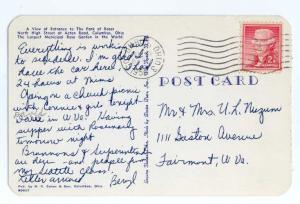 A View of Entrance to the Park of Roses
North High Street at Acton Road, Columbus, Ohio
The Largest Municipal Rose Garden in the World
Everything is working out
to schedule. I'm glad I
have the car here. Had
24 hours at Moms
Going on a church picnic
with Connie & girls tonight
Here in W Va. Having
supper with Rosemary
tomorrow night
& Superintendent
are dear - and people from
my Seattle class!
Letter arrived
Beryl
POST CARD
Mr & Mrs U. L. Nuzum
1111 Gaston Avenue
Fairmont, W. Va.